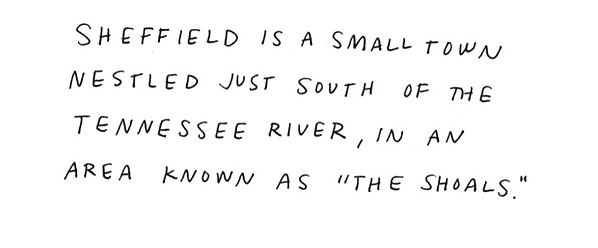 SHEFFIELD IS A SMALL TOWN
NESTLED JUST SOUTH OF THE
TENNESSEE RIVER, IN AN
AREA KNOWN AS "THE SHOALS."